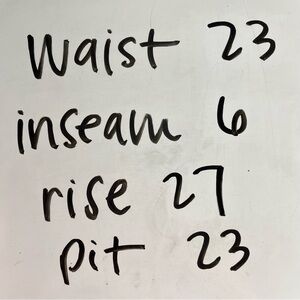 waist 23
inseam 6
rise 27
pit 23